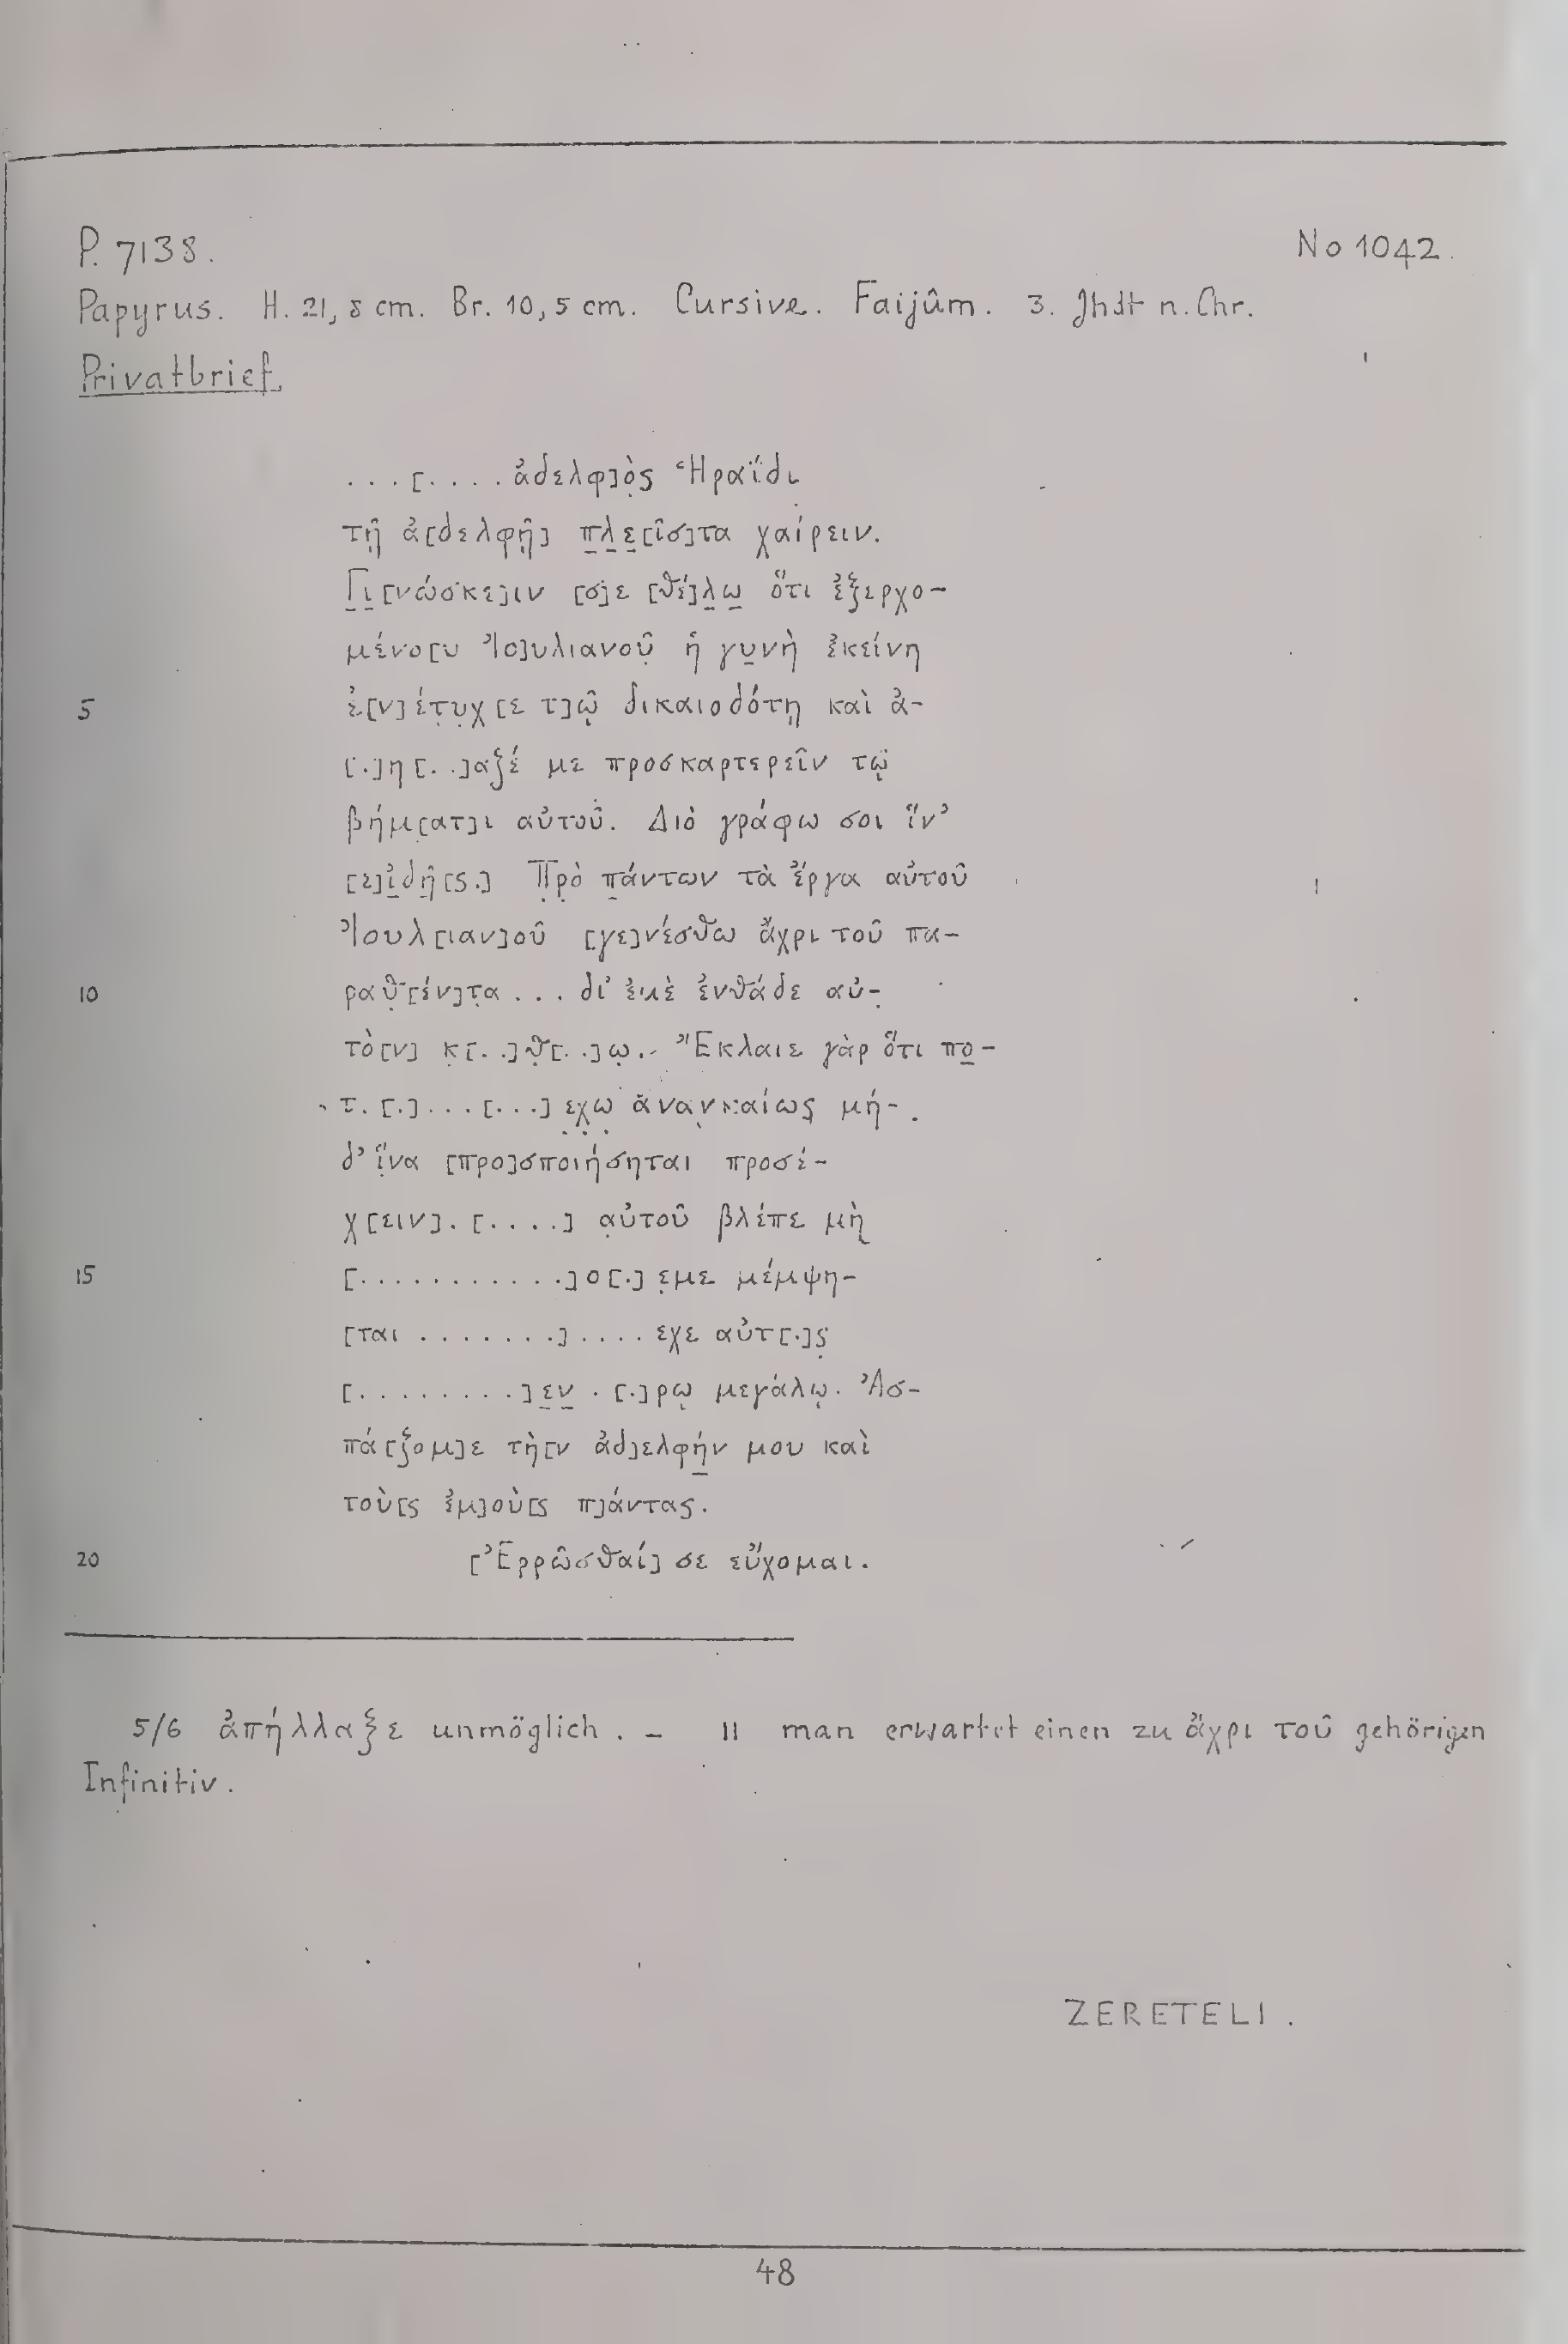 P. 7138. No 1042.
Papyrus. H. 21,8 cm. Br. 10,5 cm. Cursive. Faijûm. 3. Jhdt n. Chr.
Privatbrief.
. . . [. . . . ἀδελφ]ὸ̣ς Ἡραΐδι
τῇ ἀ[δελφῇ] π̣λ̣ε̣[ῖσ]τα χαίρειν.
Γ̣ι̣[νώσκε]ιν [σ]ε [θέ]λ̣ω̣ ὅτι ἐξερχο-
μένο[υ Ἰο]υλιανοῦ̣ ἡ γυ̣νὴ ἐκείνη
5 ἐ[ν]έτ̣υ̣χ[ε τ]ῷ δικαιοδότῃ καὶ ἀ-
[.]η[. .]αξέ με προσκαρτερεῖν τῷ
βήμ̣[ατ]ι αὐτοῦ. Διὸ γράφω σοι ἵν'
[ε]ἰ̣δῇ̣[ς.] Π̣ρ̣ὸ π̣άντων τὰ ἔργα αὐτοῦ
Ἰουλ[ιαν]οῦ [γε]νέσθω ἄχρι τοῦ πα-
10 ραθ̣[έν]τ̣α . . . δι' ἐμὲ ἐνθάδε αὐ-
τὸ[ν] κ̣[. .]θ̣[. .]ω̣. Ἔκλαιε γὰρ ὅτι πο̣-
τ. [.] . . . [. . .] ε̣χ̣ω̣ ἀναν̣καίως μή-
δ' ἵ̣να [προ]σποιήσηται προσέ-
χ[ειν]. [. . . .] α̣ὐτοῦ βλέπε μὴ
15 [. . . . . . . . . . .]ο[.] ε̣με μέμψη-
[ται . . . . . . .] . . . . εχε αὐτ[.]ς̣
[. . . . . . . .]ε̣ν̣ . [.]ρῳ μεγάλῳ. Ἀσ-
πά[ζομ]ε τὴ[ν ἀδ]ελφή̣ν μου καὶ
τοὺ[ς ἐμ]οὺ[ς π]άντας.
20 [Ἐρρῶσθαί] σε εὔχομαι.
5/6 ἀπήλλαξε unmöglich. – 11 man erwartet einen zu ἄχρι τοῦ gehörigen
Infinitiv.
ZERETELI.
48